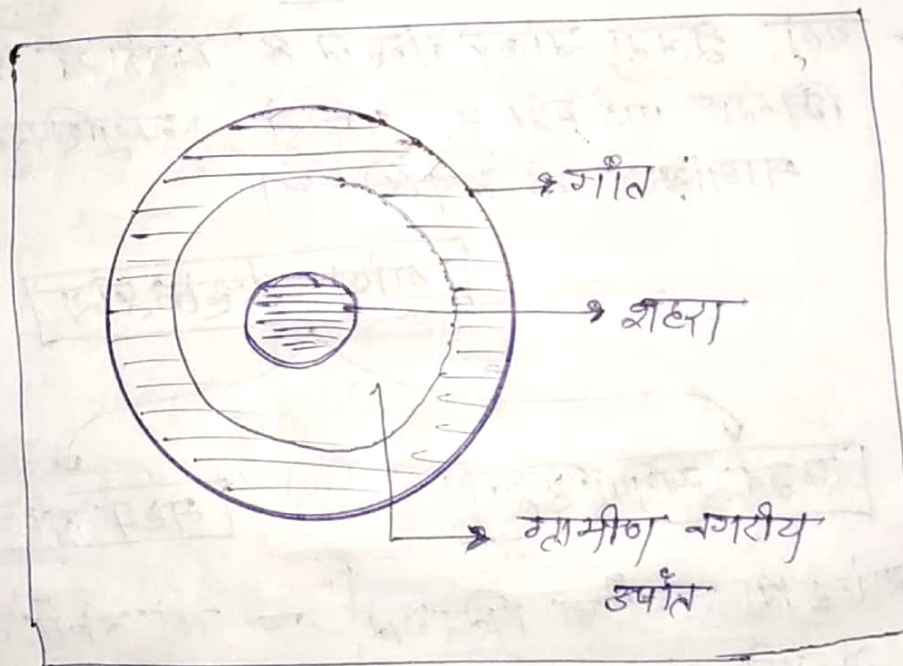 गाँव
शहर
ग्रामीण नगरीय
उपाँत